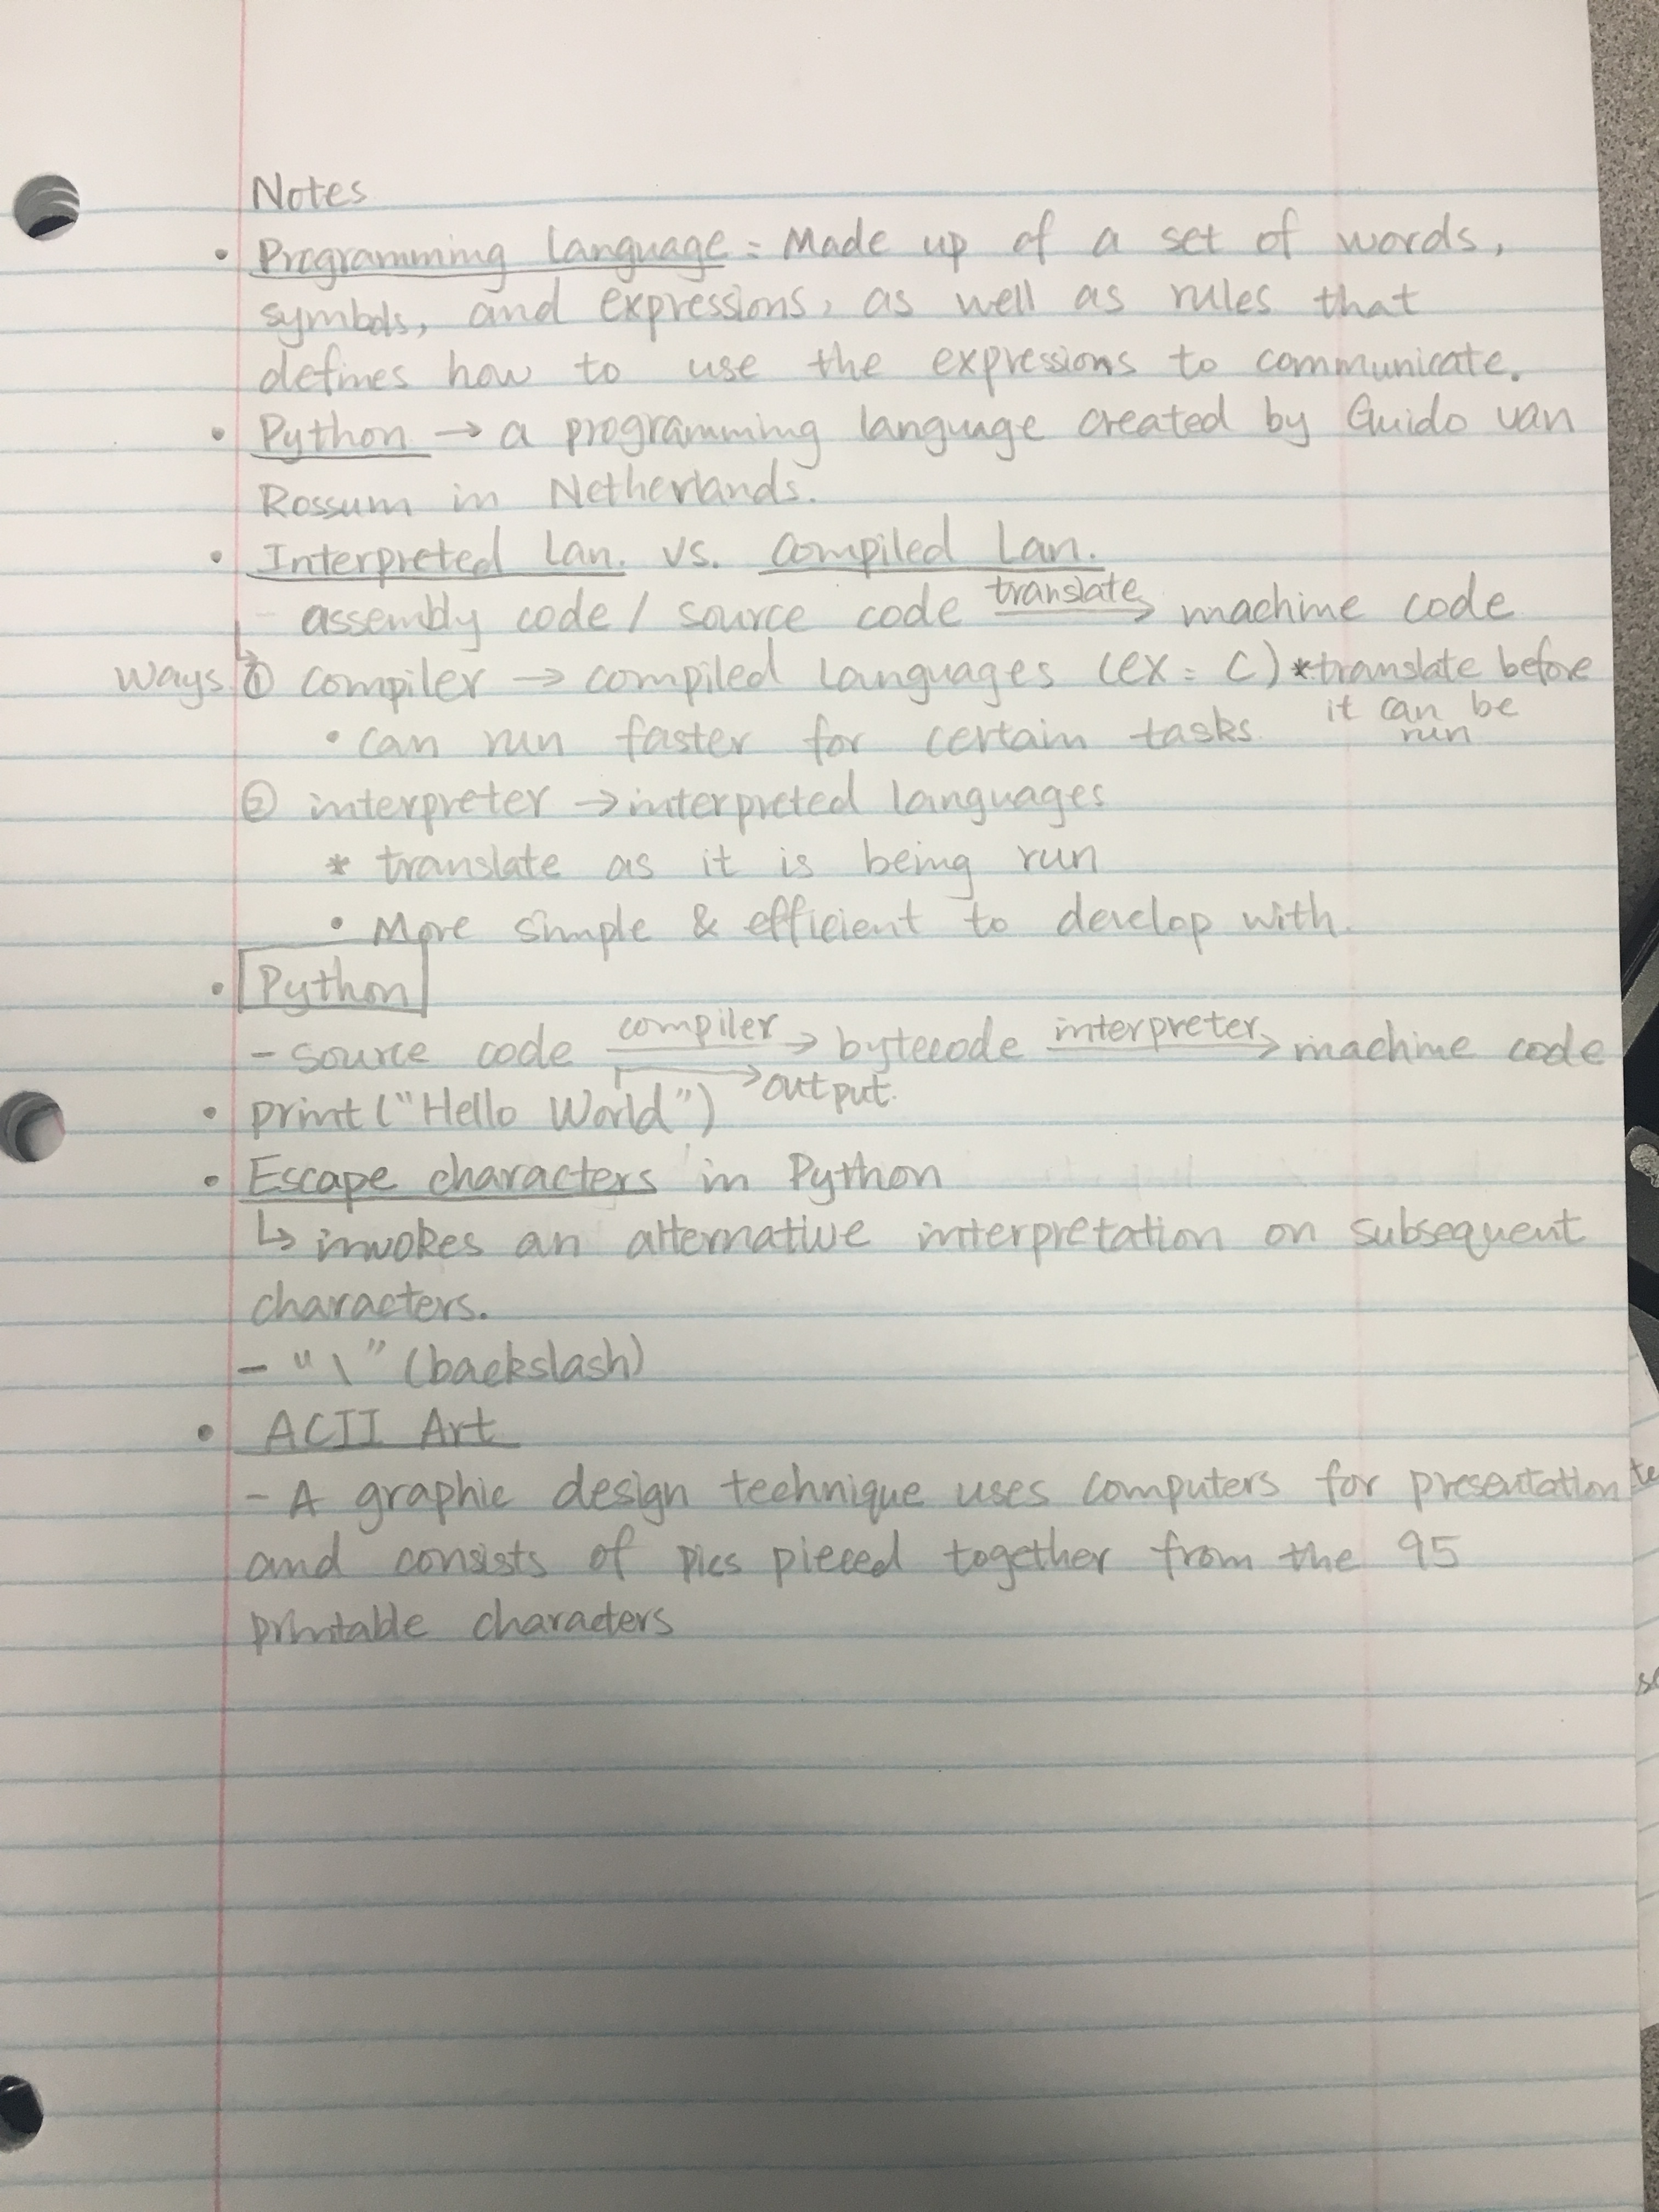 Notes
• Programming language: Made up of a set of words,
symbols, and expressions, as well as rules that
defines how to use the expressions to communicate.
• Python → a programming language created by Guido van
Rossum in Netherlands.
• Interpreted Lan. vs. Compiled Lan.
- assembly code / source code translate → machine code
Ways ① compiler → compiled languages (ex: C) *translate before
it can be
run
• can run faster for certain tasks.
② interpreter → interpreted languages
* translate as it is being run
• More simple & efficient to develop with.
• Python
- source code compiler → bytecode interpreter → machine code
• print("Hello World") → output.
• Escape characters in Python
↳ invokes an alternative interpretation on subsequent
characters.
- "\" (backslash)
• ACII Art
- A graphic design technique uses computers for presentation
and consists of pics pieced together from the 95
printable characters